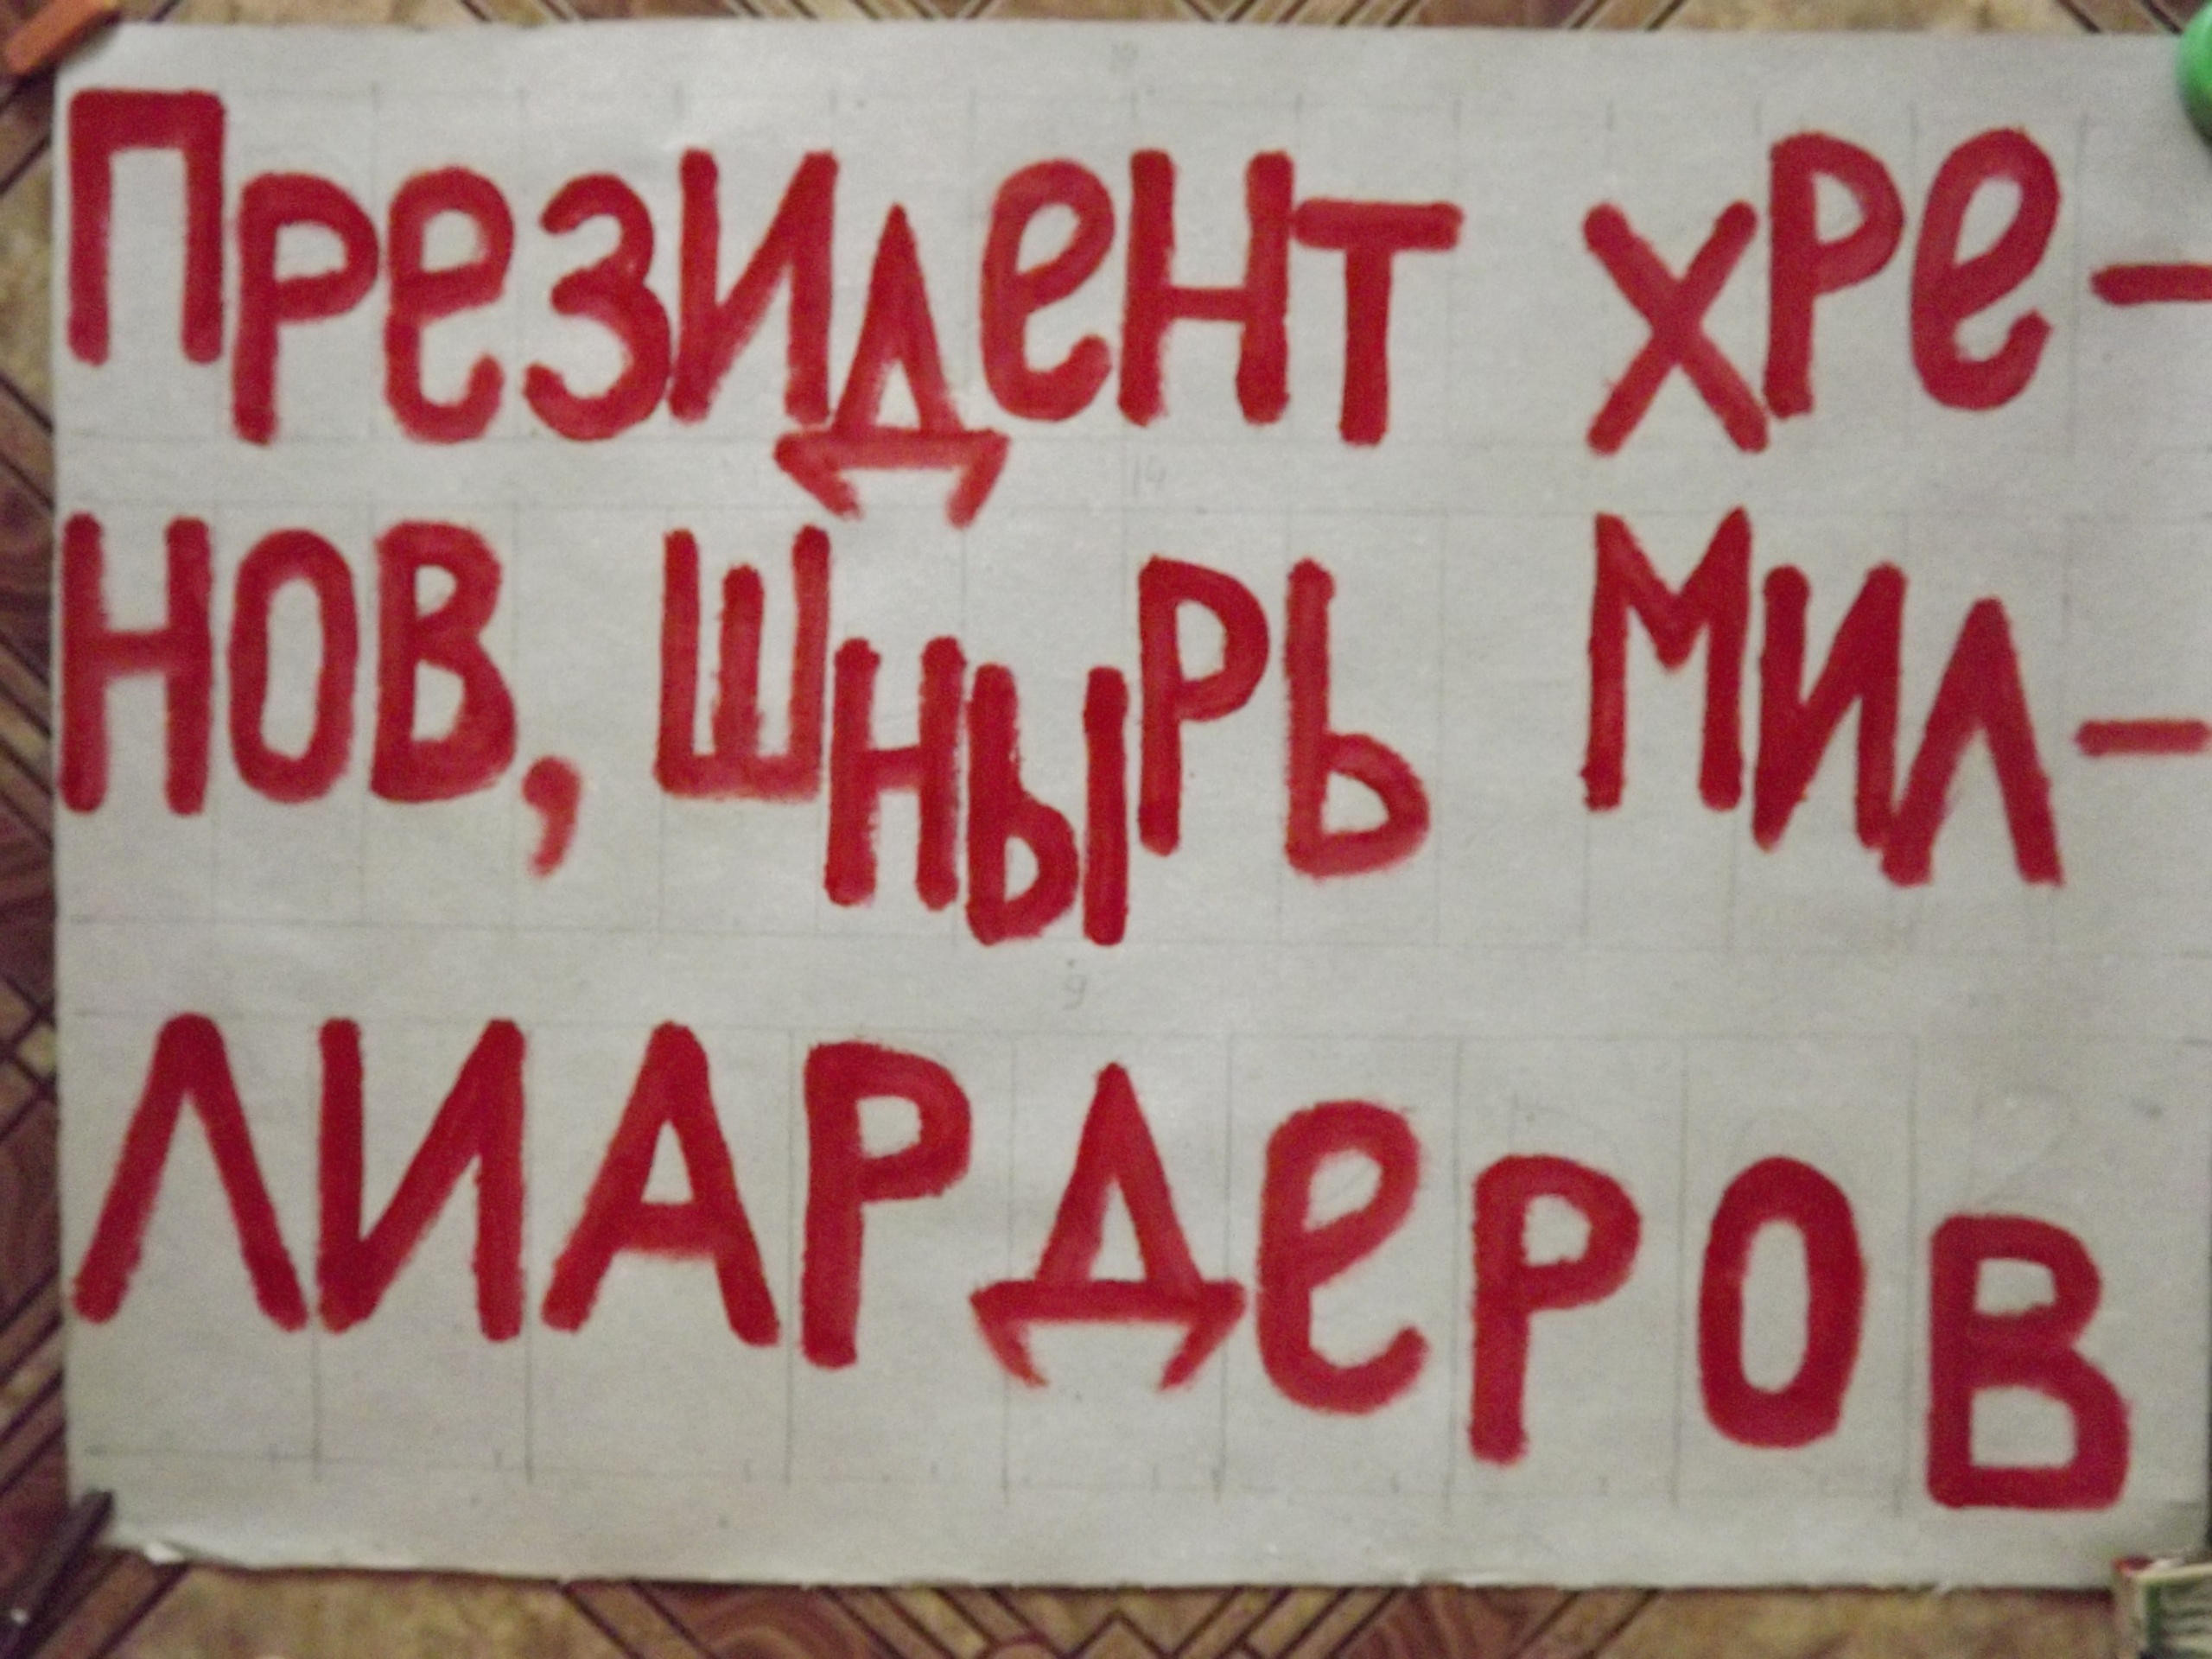 Президент хре-
нов, шнырь мил-
лиардеров